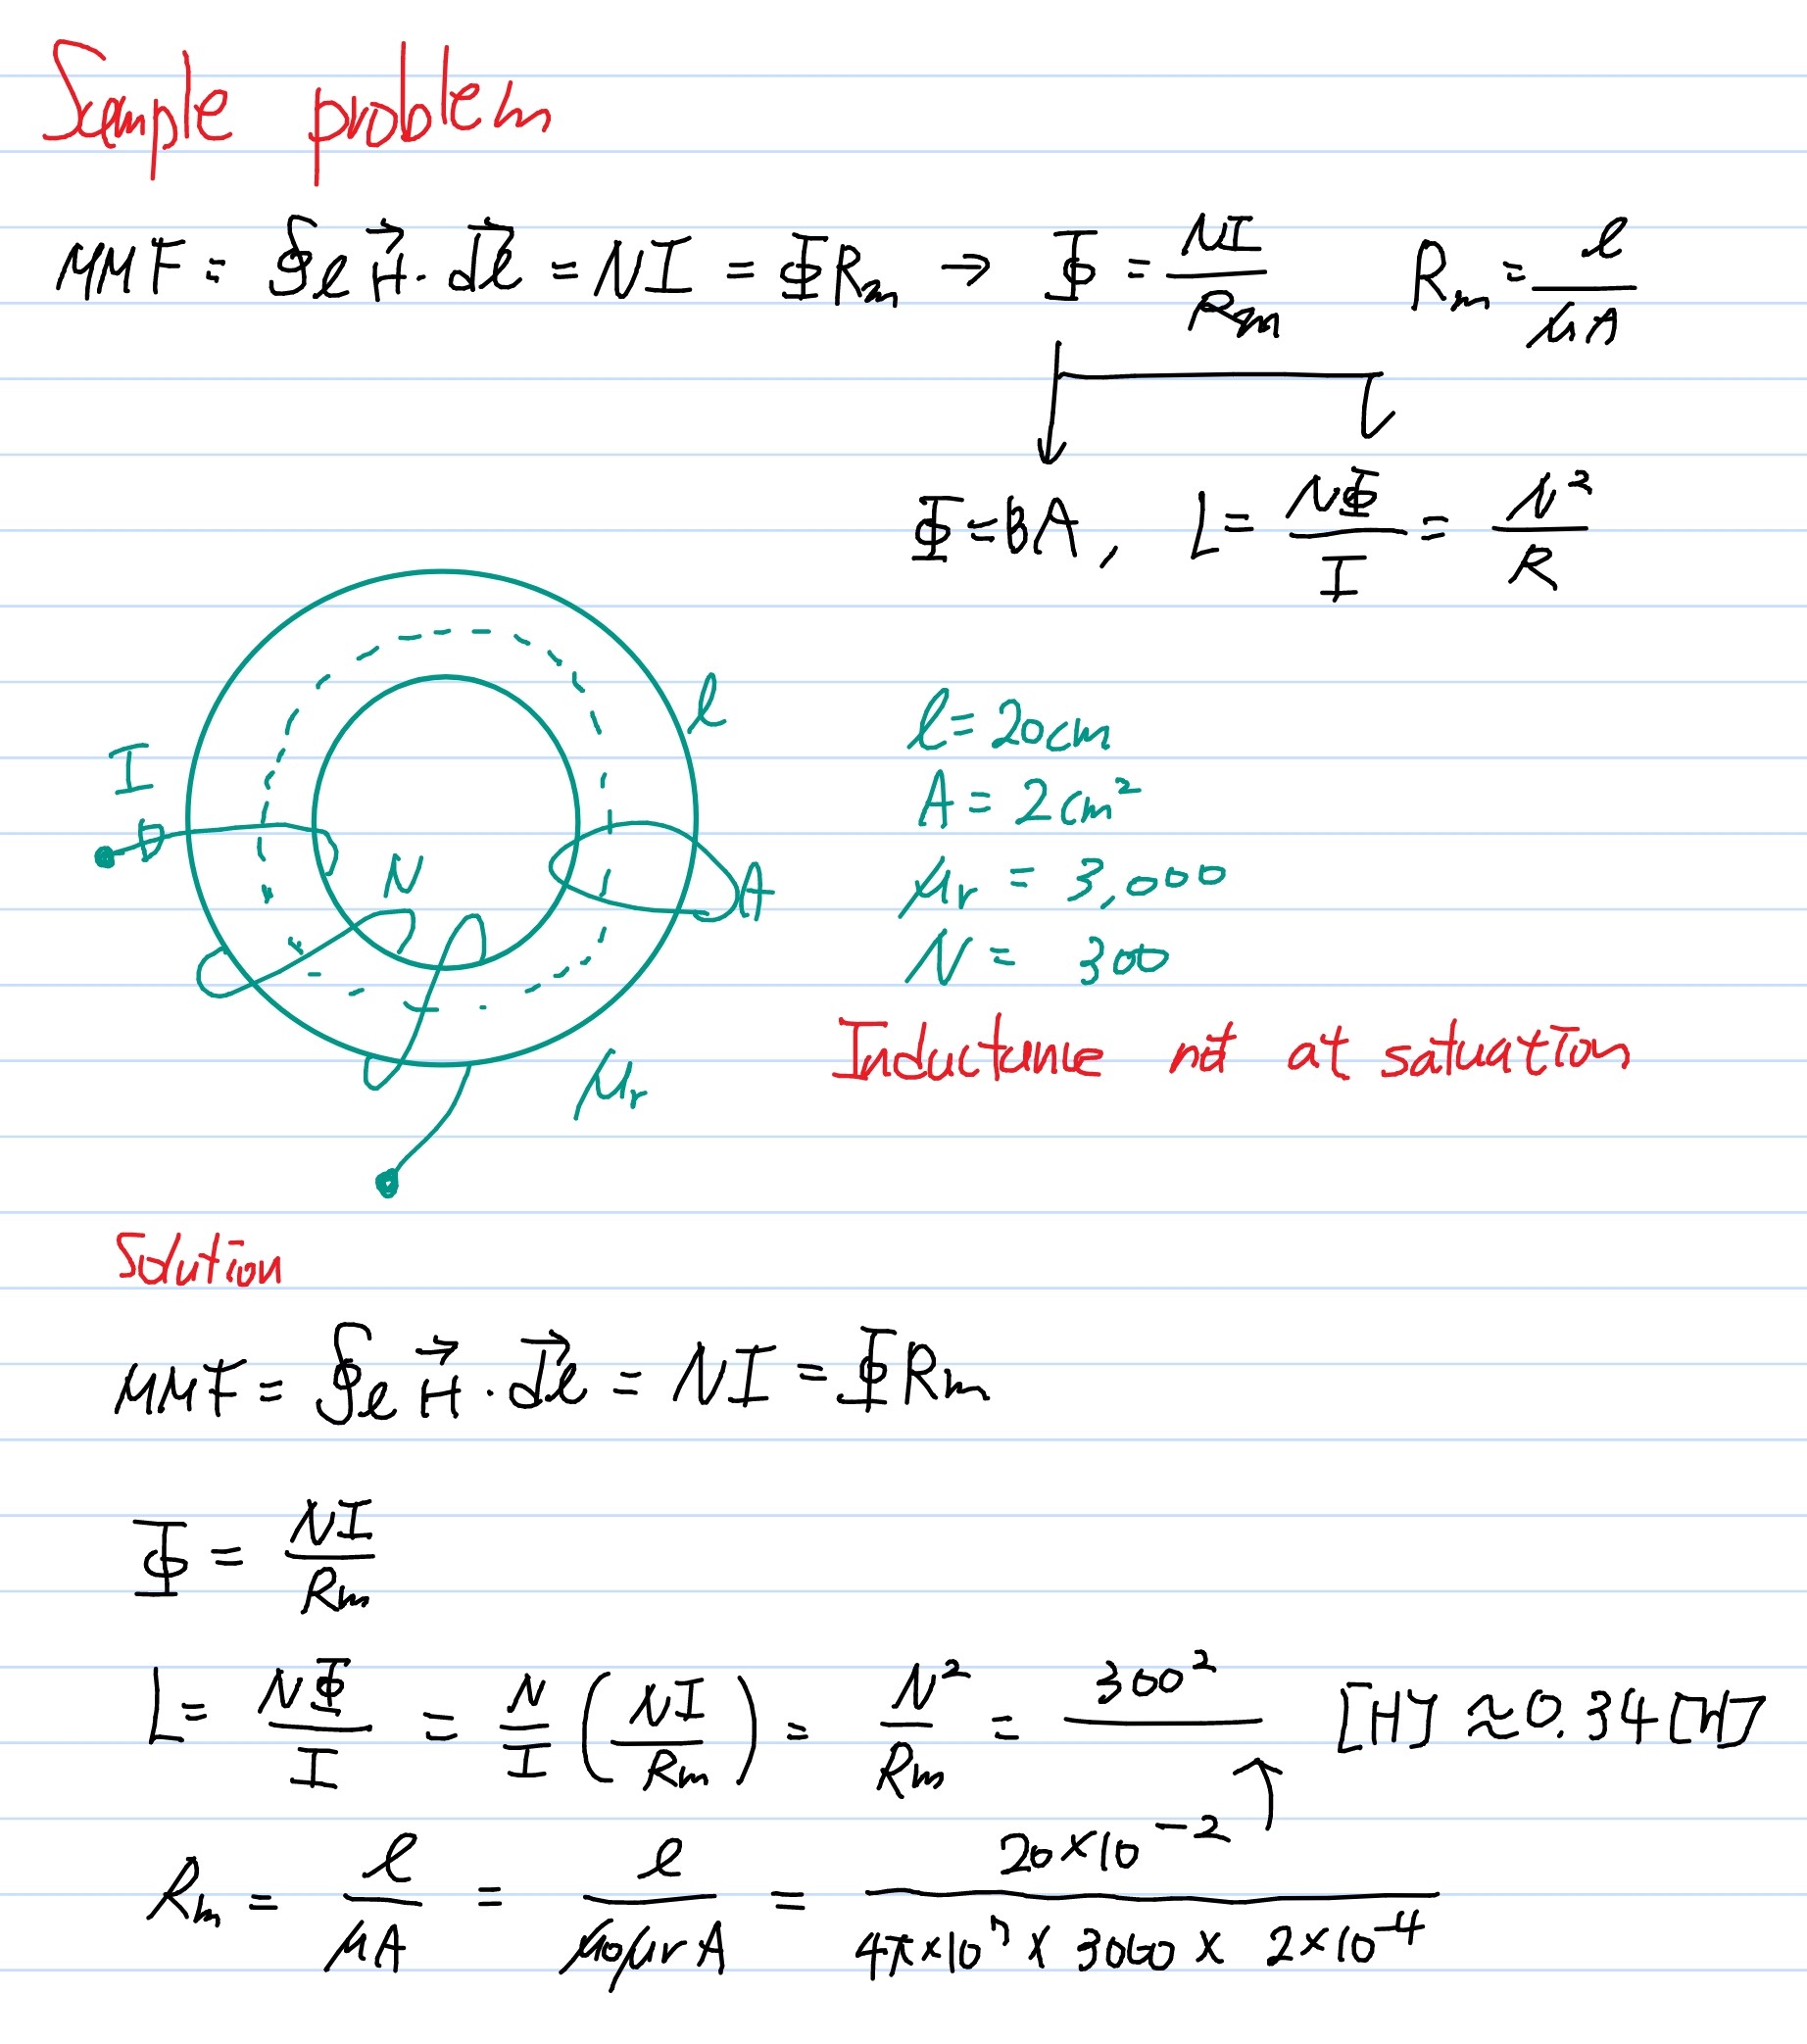 Sample problem
MMF = ∮ℓ H⃗ · d⃗ℓ = NI = ΦRm → Φ = NI/Rm Rm = ℓ/μA
Φ = BA, L = NΦ/I = N²/R
ℓ
I
N
A
μr
ℓ = 20cm
A = 2cm²
μr = 3,000
N = 300
Inductance not at satuation
Solution
MMF = ∮ℓ H⃗ · d⃗ℓ = NI = ΦRm
Φ = NI/Rm
L = NΦ/I = N/I (NI/Rm) = N²/Rm = 300²/ [H] ≈ 0.34 [H]
Rm = ℓ/μA = ℓ/μ0μrA = 20×10⁻²/4π×10⁷ × 3000 × 2×10⁻⁴